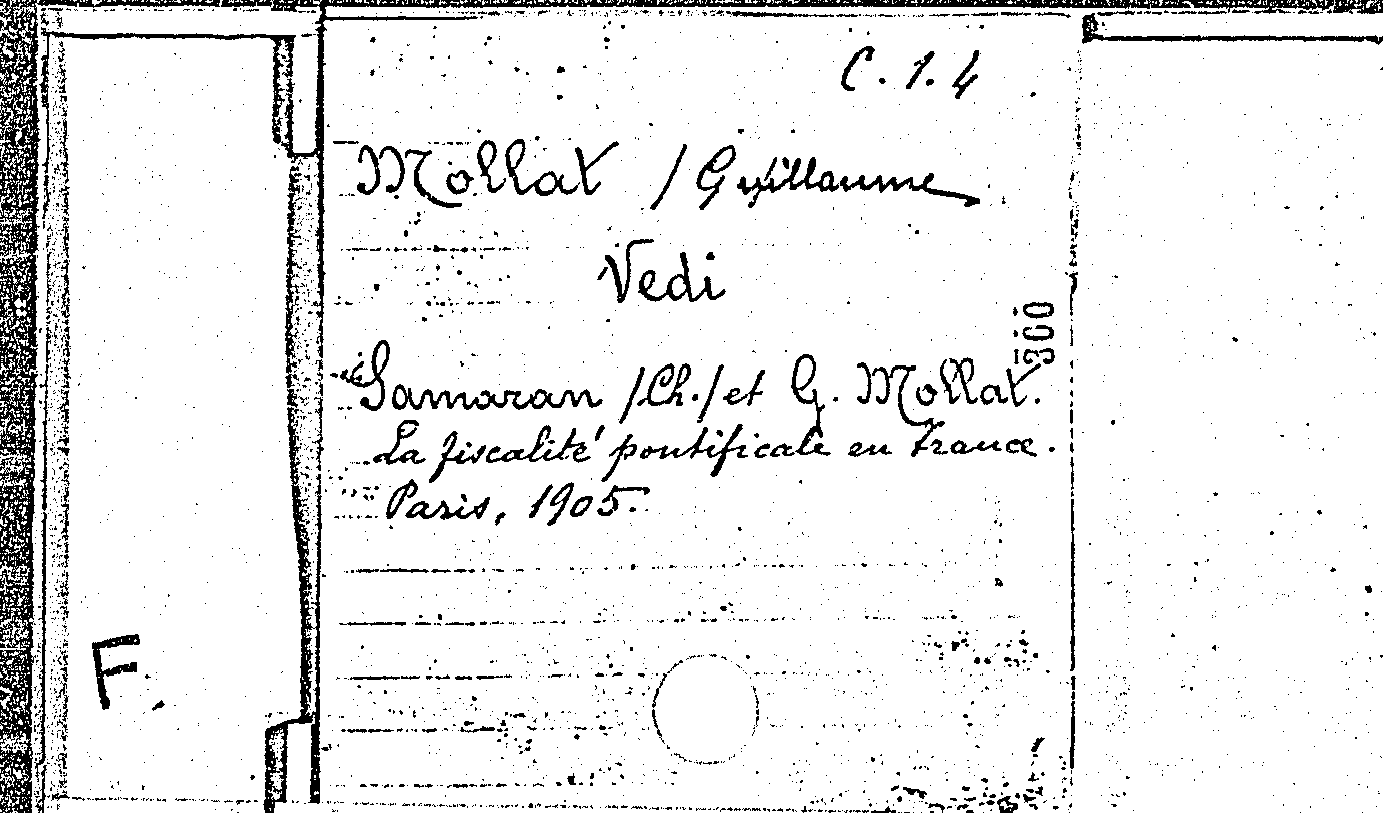 C. 1. 4
Mollat /Guillaume
Vedi
300
Samaran /Ch./ et G. Mollat.
La fiscalité pontificale en France.
Paris, 1905.
F.